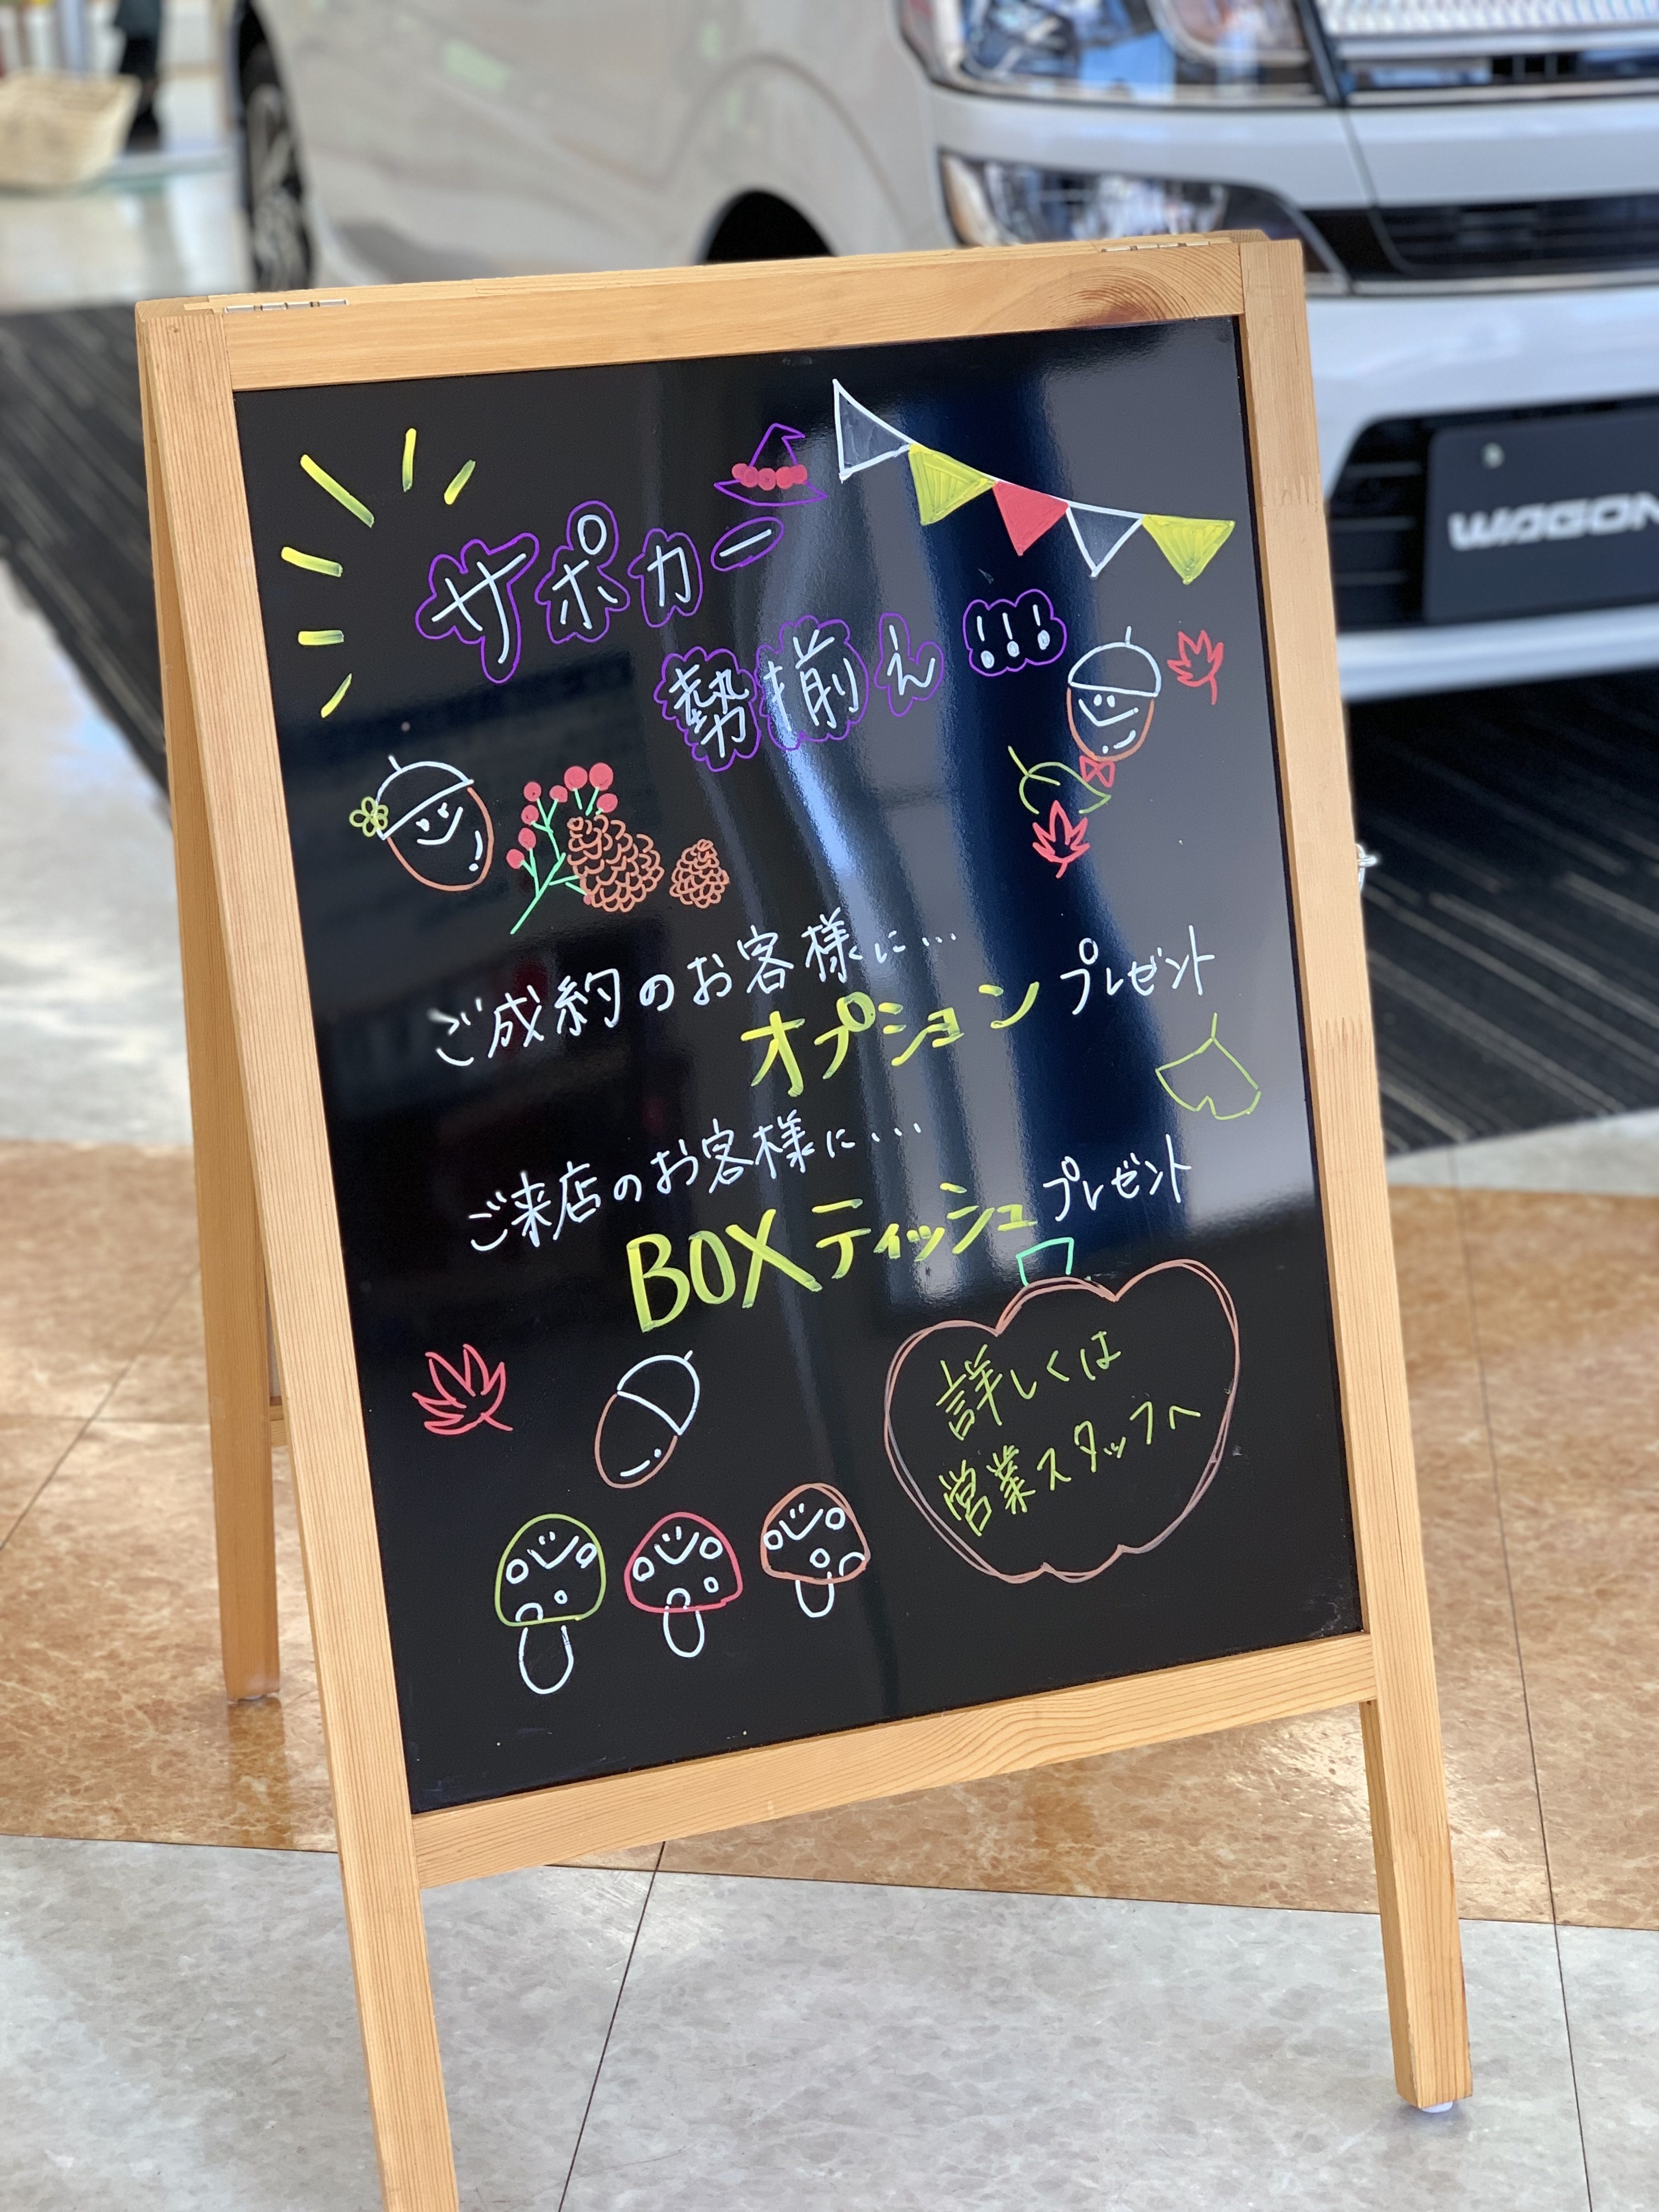 サポカー
勢揃え!!!
ご成約のお客様に…
オプションプレゼント
ご来店のお客様に…
BOXティッシュプレゼント
詳しくは
営業スタッフへ
WAGON